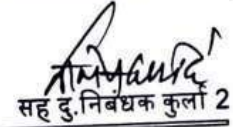 सह दु.निबंधक कुर्ला 2